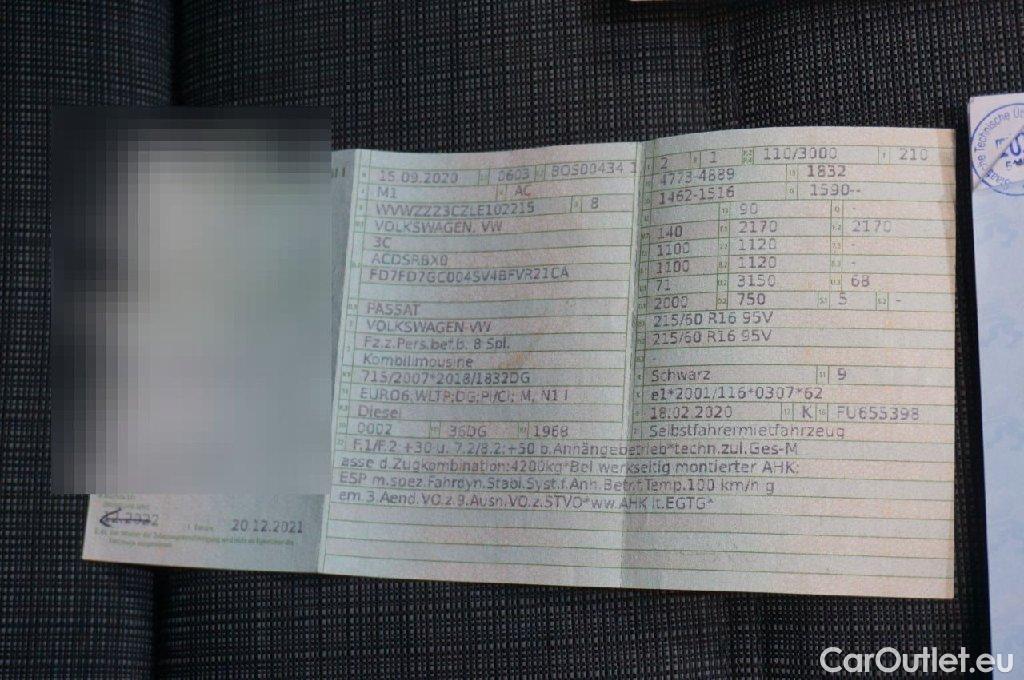 15.09.2020 0603 BOS00434 1
M1 AC
WVWZZZ3CZLE102215 8
VOLKSWAGEN, VW
3C
ACDSRBX0
FD7FD7GC004SV4BFVR21CA
PASSAT
VOLKSWAGEN-VW
Fz.z.Pers.bef.b. 8 Spl.
Kombilimousine
715/2007*2018/1832DG
EURO6;WLTP;DG;PI/CI; M, N1 I
Diesel
0002 36DG 1968
2 1 110/3000 210
4773-4889 1832
1462-1516 1590--
90 -
140 2170 2170
1100 1120 -
1100 1120 -
71 3150 68
2000 750 5 -
215/60 R16 95V
215/60 R16 95V
-
Schwarz 9
e1*2001/116*0307*62
18.02.2020 K FU655398
Selbstfahrermietfahrzeug
F.1/F.2:+30 u. 7.2/8.2:+50 b.Anhängebetrieb*techn.zul.Ges-M
asse d.Zugkombination:4200kg*Bei werkseitig montierter AHK:
ESP m.spez.Fahrdyn.Stabil.Syst.f.Anh.Betr.f.Temp.100 km/h g
em.3.Aend.VO.z.9.Ausn.VO.z.STVO*ww.AHK lt.EGTG*
20.12.2021
CarOutlet.eu